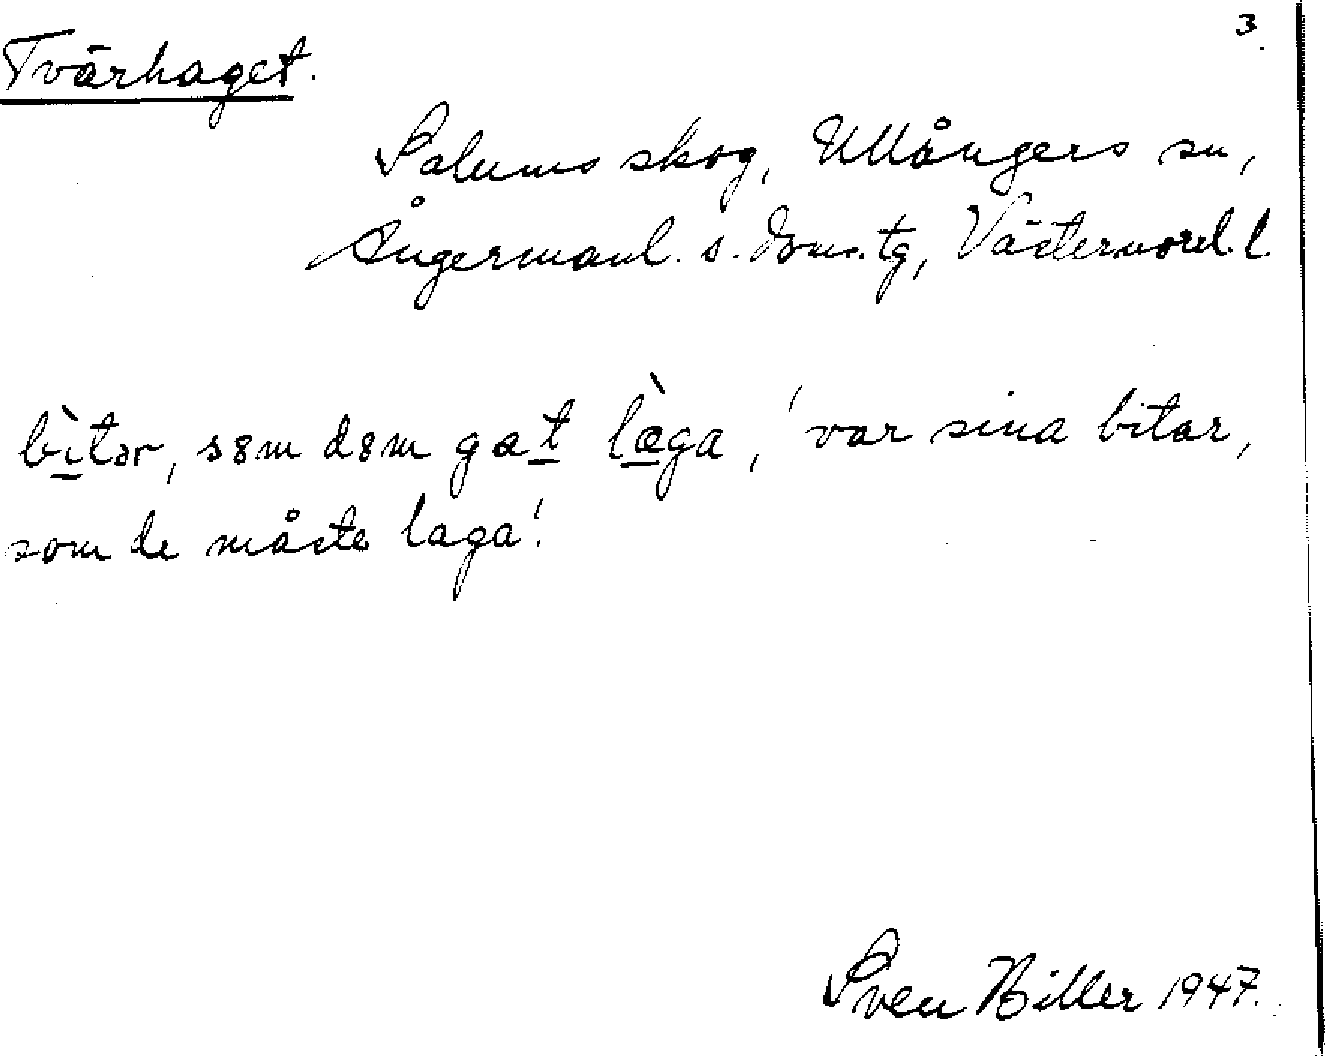 3
Tvärhaget.
Salums skog, Ullångers sn,
Ångermanl. s. doms. tg, Västernorrl. l.
bìtar, s8m d8m gat làga, ' var sina bitar,
som de måste laga'.
Sven Biller 1947.